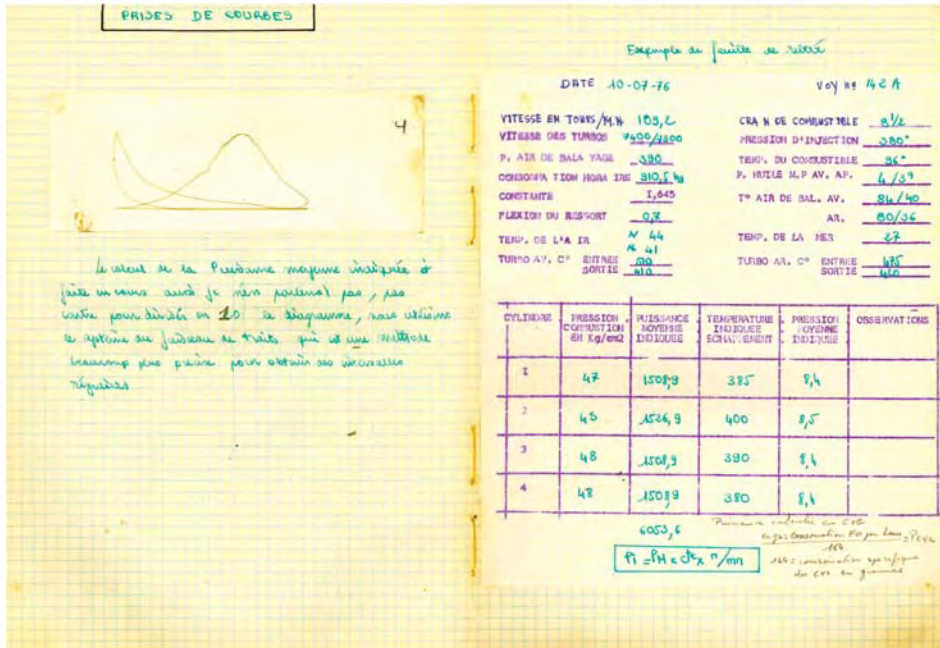 PRISES DE COURBES
4
Le calcul de la Puissance moyenne indiquée à
faite en cours aussi je n'en parlerai pas, par
contre pour diviser en 10 le diagramme, nous utilisons
le système du faisceau de traits qui est une méthode
beaucoup plus précise pour obtenir des intervalles
réguliers
Exemple de feuille de relevé
DATE 10-07-76 VOY nº 142 A
VITESSE EN TOURS/M.N 109,2
VITESSE DES TURBOS
P. AIR DE BALAYAGE 390
CONSOMMATION HORAIRE 910,5 kg
CONSTANTE 1,645
FLEXION DU RESSORT 0,8
TEMP. DE L'AIR N 44
R 41
TURBO AV. Cº ENTREE 510
SORTIE 410
CRAN DE COMBUSTIBLE 8 1/2
PRESSION D'INJECTION 380°
TEMP. DU COMBUSTIBLE 96°
P. HUILE M.P AV. AR.
Tº AIR DE BAL. AV. 84/40
AR. 80/36
TEMP. DE LA MER 27
TURBO AR. Cº ENTREE 475
SORTIE 420
CYLINDRE PRESSION COMBUSTION EN Kg/cm2 PUISSANCE MOYENNE INDIQUEE TEMPERATURE INDIQUEE ECHAPPEMENT PRESSION MOYENNE INDIQUEE OBSERVATIONS
I 47 1508,9 385 8,4
2 45 1526,9 400 8,5
3 48 1508,9 390 8,4
4 48 1508,9 380 8,4
6053,6
Pi = PM x Cte x n/mn
Puissance calculée en CVE
en gr consommation FO par heure = PCVE
164
164 = consommation spécifique
du CVE en grammes